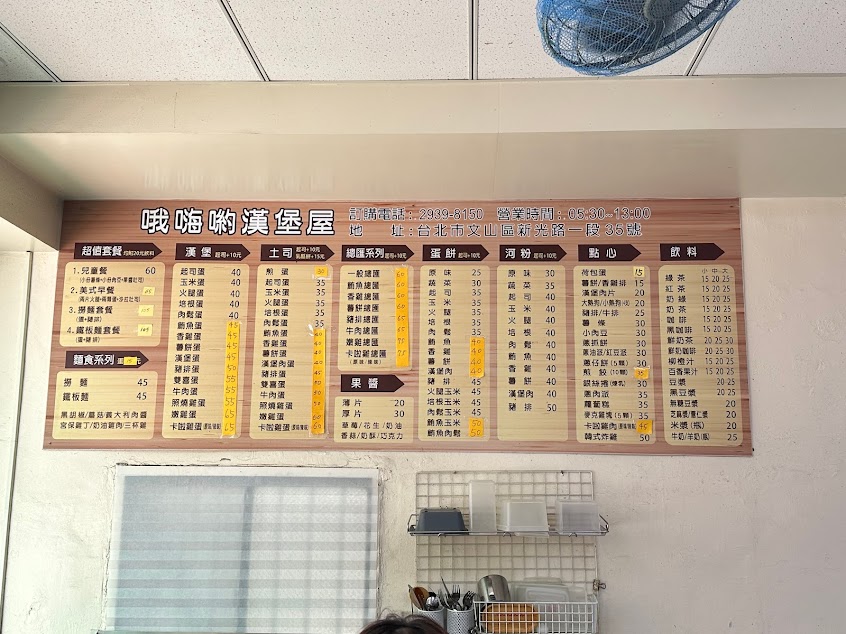 哦嗨喲漢堡屋
訂購電話：2939-8150 營業時間：05:30~13:00
地 址：台北市文山區新光路一段35號
超值套餐
1.兒童餐 60
2.美式早餐
3.撈麵套餐
(蛋+豬排)
4.鐵板麵套餐
(蛋+豬排)
麵食系列
撈麵 45
鐵板麵 45
黑胡椒/蘑菇義大利肉醬
宮保雞丁/奶油雞肉三杯雞
漢堡 起司+10元
起司蛋 40
玉米蛋 40
火腿蛋 40
培根蛋 40
肉鬆蛋 40
鮪魚蛋 45
香雞蛋 45
薯餅蛋 45
漢堡蛋 45
豬排蛋 50
雙喜蛋 55
牛肉蛋 50
照燒雞蛋 55
嫩雞蛋 65
卡啦雞蛋 65
土司 起司+10元
乳酪餅+15元
煎蛋 30
起司蛋 35
玉米蛋 35
火腿蛋 35
培根蛋 35
肉鬆蛋 35
鮪魚蛋
香雞蛋
薯餅蛋
漢堡肉蛋
豬排蛋
雙喜蛋
牛肉蛋
照燒雞蛋
嫩雞蛋 60
卡啦雞蛋 60
總匯系列 起司+10元
一般總匯 60
鮪魚總匯
香雞總匯
漢堡總匯
薯餅總匯
豬排總匯
牛肉總匯
嫩雞總匯
卡啦雞總匯
果醬
薄片 20
厚片 30
草莓/花生/奶油
香蒜/奶酥/巧克力
蛋餅 起司+10元
原味 25
蔬菜 30
起司 35
玉米 35
火腿 35
培根 35
肉鬆 35
鮪魚 40
香雞 40
薯餅 40
漢堡肉 40
豬排 45
火腿玉米 45
培根玉米 45
肉鬆玉米 45
鮪魚玉米 50
鮪魚肉鬆 50
河粉 起司+10元
原味 30
蔬菜 35
起司 40
玉米 40
火腿 40
培根 40
肉鬆 40
鮪魚 40
香雞 40
薯餅 40
漢堡肉 40
豬排 50
點心
荷包蛋 15
薯餅/香雞排 15
漢堡肉片 20
豬排/牛排 25
薯條 30
小肉豆 30
脆抓餅 30
蔥油派/紅豆派 30
薯仔餅(5顆) 30
煎餃(10顆) 35
銀絲捲(煉乳) 30
蔥肉派 35
蘿蔔糕 35
麥克雞塊(5顆) 35
卡啦雞肉 45
韓式炸雞 50
飲料
小 中 大
綠茶 15 20 25
紅茶 15 20 25
奶綠 15 20 25
奶茶 15 20 25
咖啡 15 20 25
黑咖啡 15 20 25
鮮奶茶 20 25 30
鮮奶咖啡 20 25 30
柳橙汁 15 20 25
百香果汁 15 20 25
豆漿 20 25
黑豆漿 20 25
無糖豆漿 20
芝麻漿/薏仁漿 20
米漿(瓶) 20
牛奶/羊奶(瓶) 25